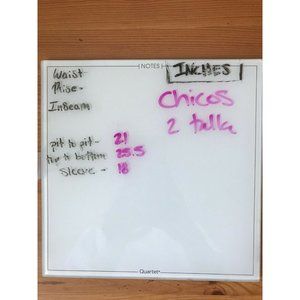 [NOTES]
INCHES
Waist
Rise-
InSeam
Chicos
2 talla
pit to pit- 21
top to bottom 25.5
Sleeve - 18
Quartet